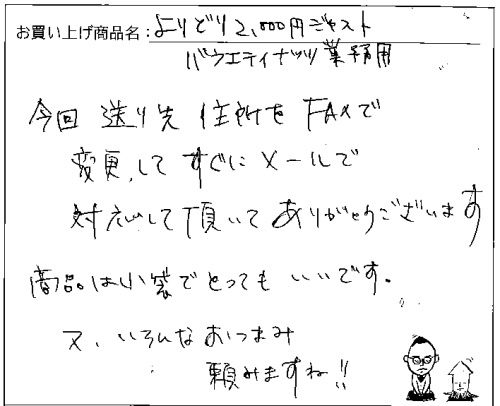 お買い上げ商品名:よりどり2,000円ジャスト
バラエティナッツ業務用
今回 送り先 住所を FAXで
変更、して すぐに メールで
対応して頂いて ありがとうございます
商品は小袋でとっても いいです。
又、いろんな おつまみ
頼みますね!!